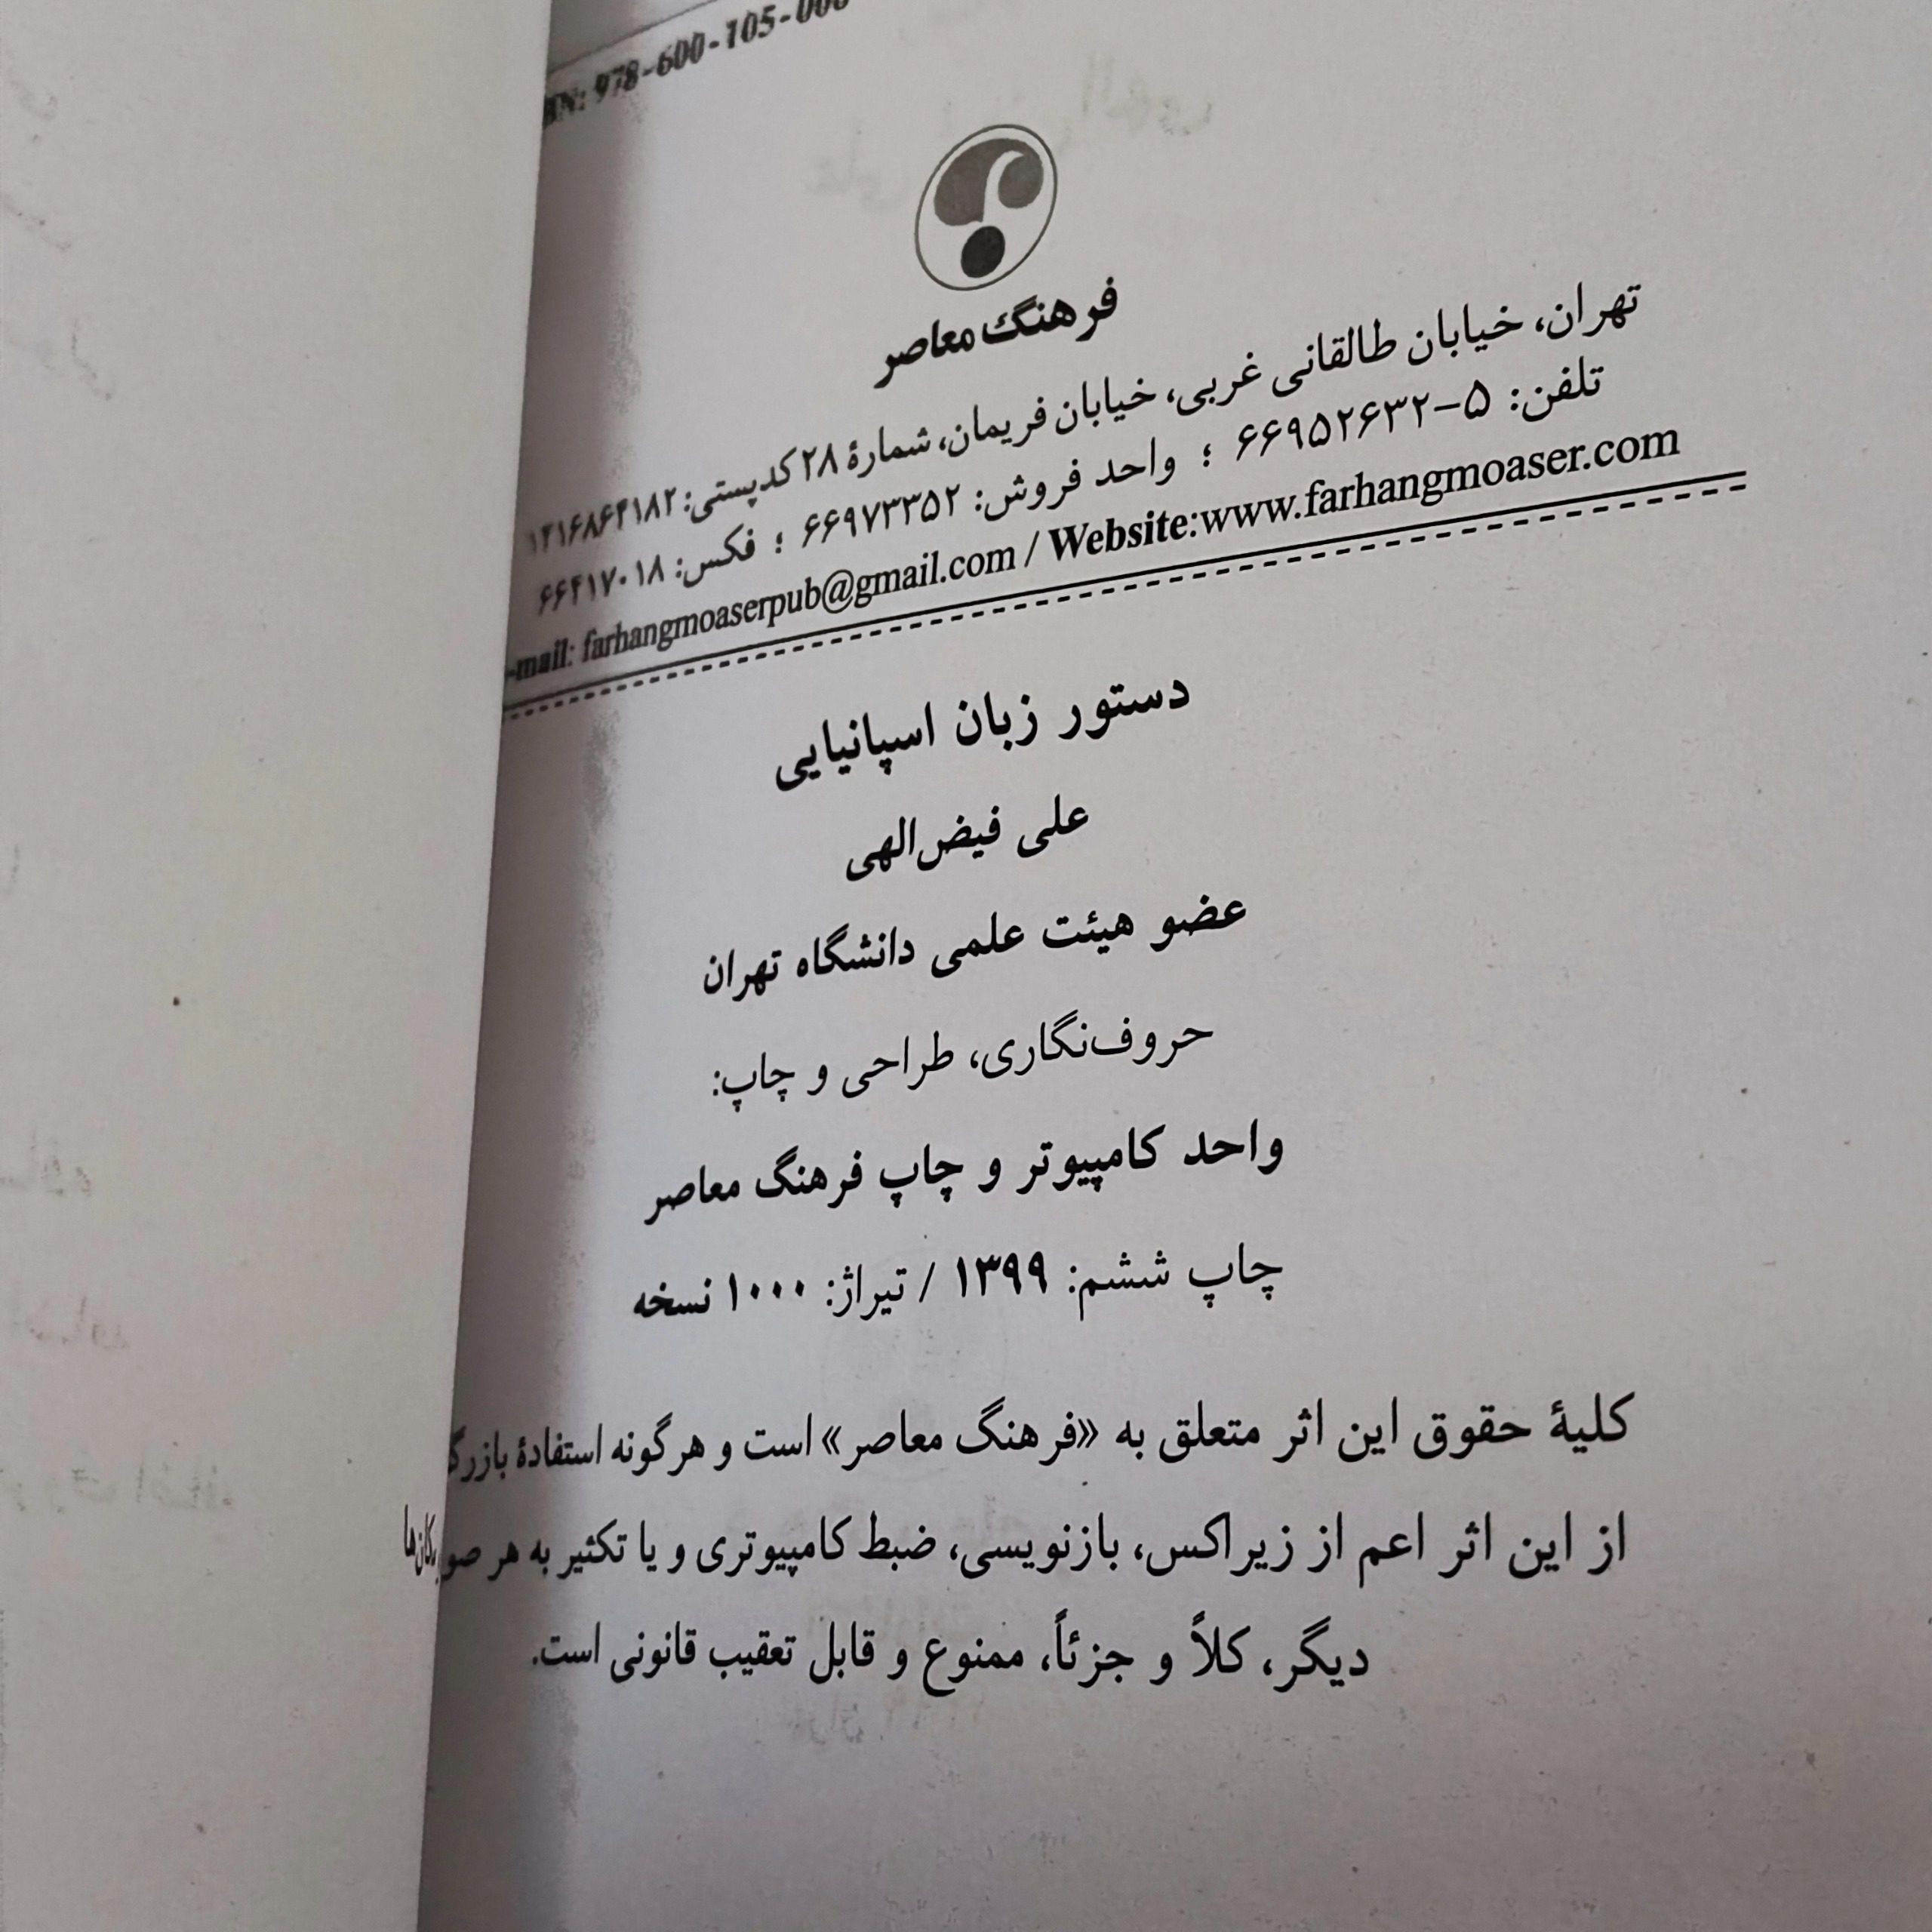 978-600-105-00
فرهنگ معاصر
تهران، خیابان طالقانی غربی، خیابان فریمان، شمارهٔ ۲۸ کدپستی: ۱۴۱۶۸۶۴۱۸۲
تلفن: ۵–۶۶۹۵۲۶۳۲ ؛ واحد فروش: ۶۶۹۷۳۳۵۲ ؛ فکس: ۶۶۴۱۷۰۱۸
-mail: farhangmoaserpub@gmail.com / Website:www.farhangmoaser.com
دستور زبان اسپانیایی
علی فیض‌الهی
عضو هیئت علمی دانشگاه تهران
حروف‌نگاری، طراحی و چاپ:
واحد کامپیوتر و چاپ فرهنگ معاصر
چاپ ششم: ۱۳۹۹ / تیراژ: ۱۰۰۰ نسخه
کلیهٔ حقوق این اثر متعلق به «فرهنگ معاصر» است و هرگونه استفادهٔ
از این اثر اعم از زیراکس، بازنویسی، ضبط کامپیوتری و یا تکثیر به هر
دیگر، کلاً و جزئاً، ممنوع و قابل تعقیب قانونی است.